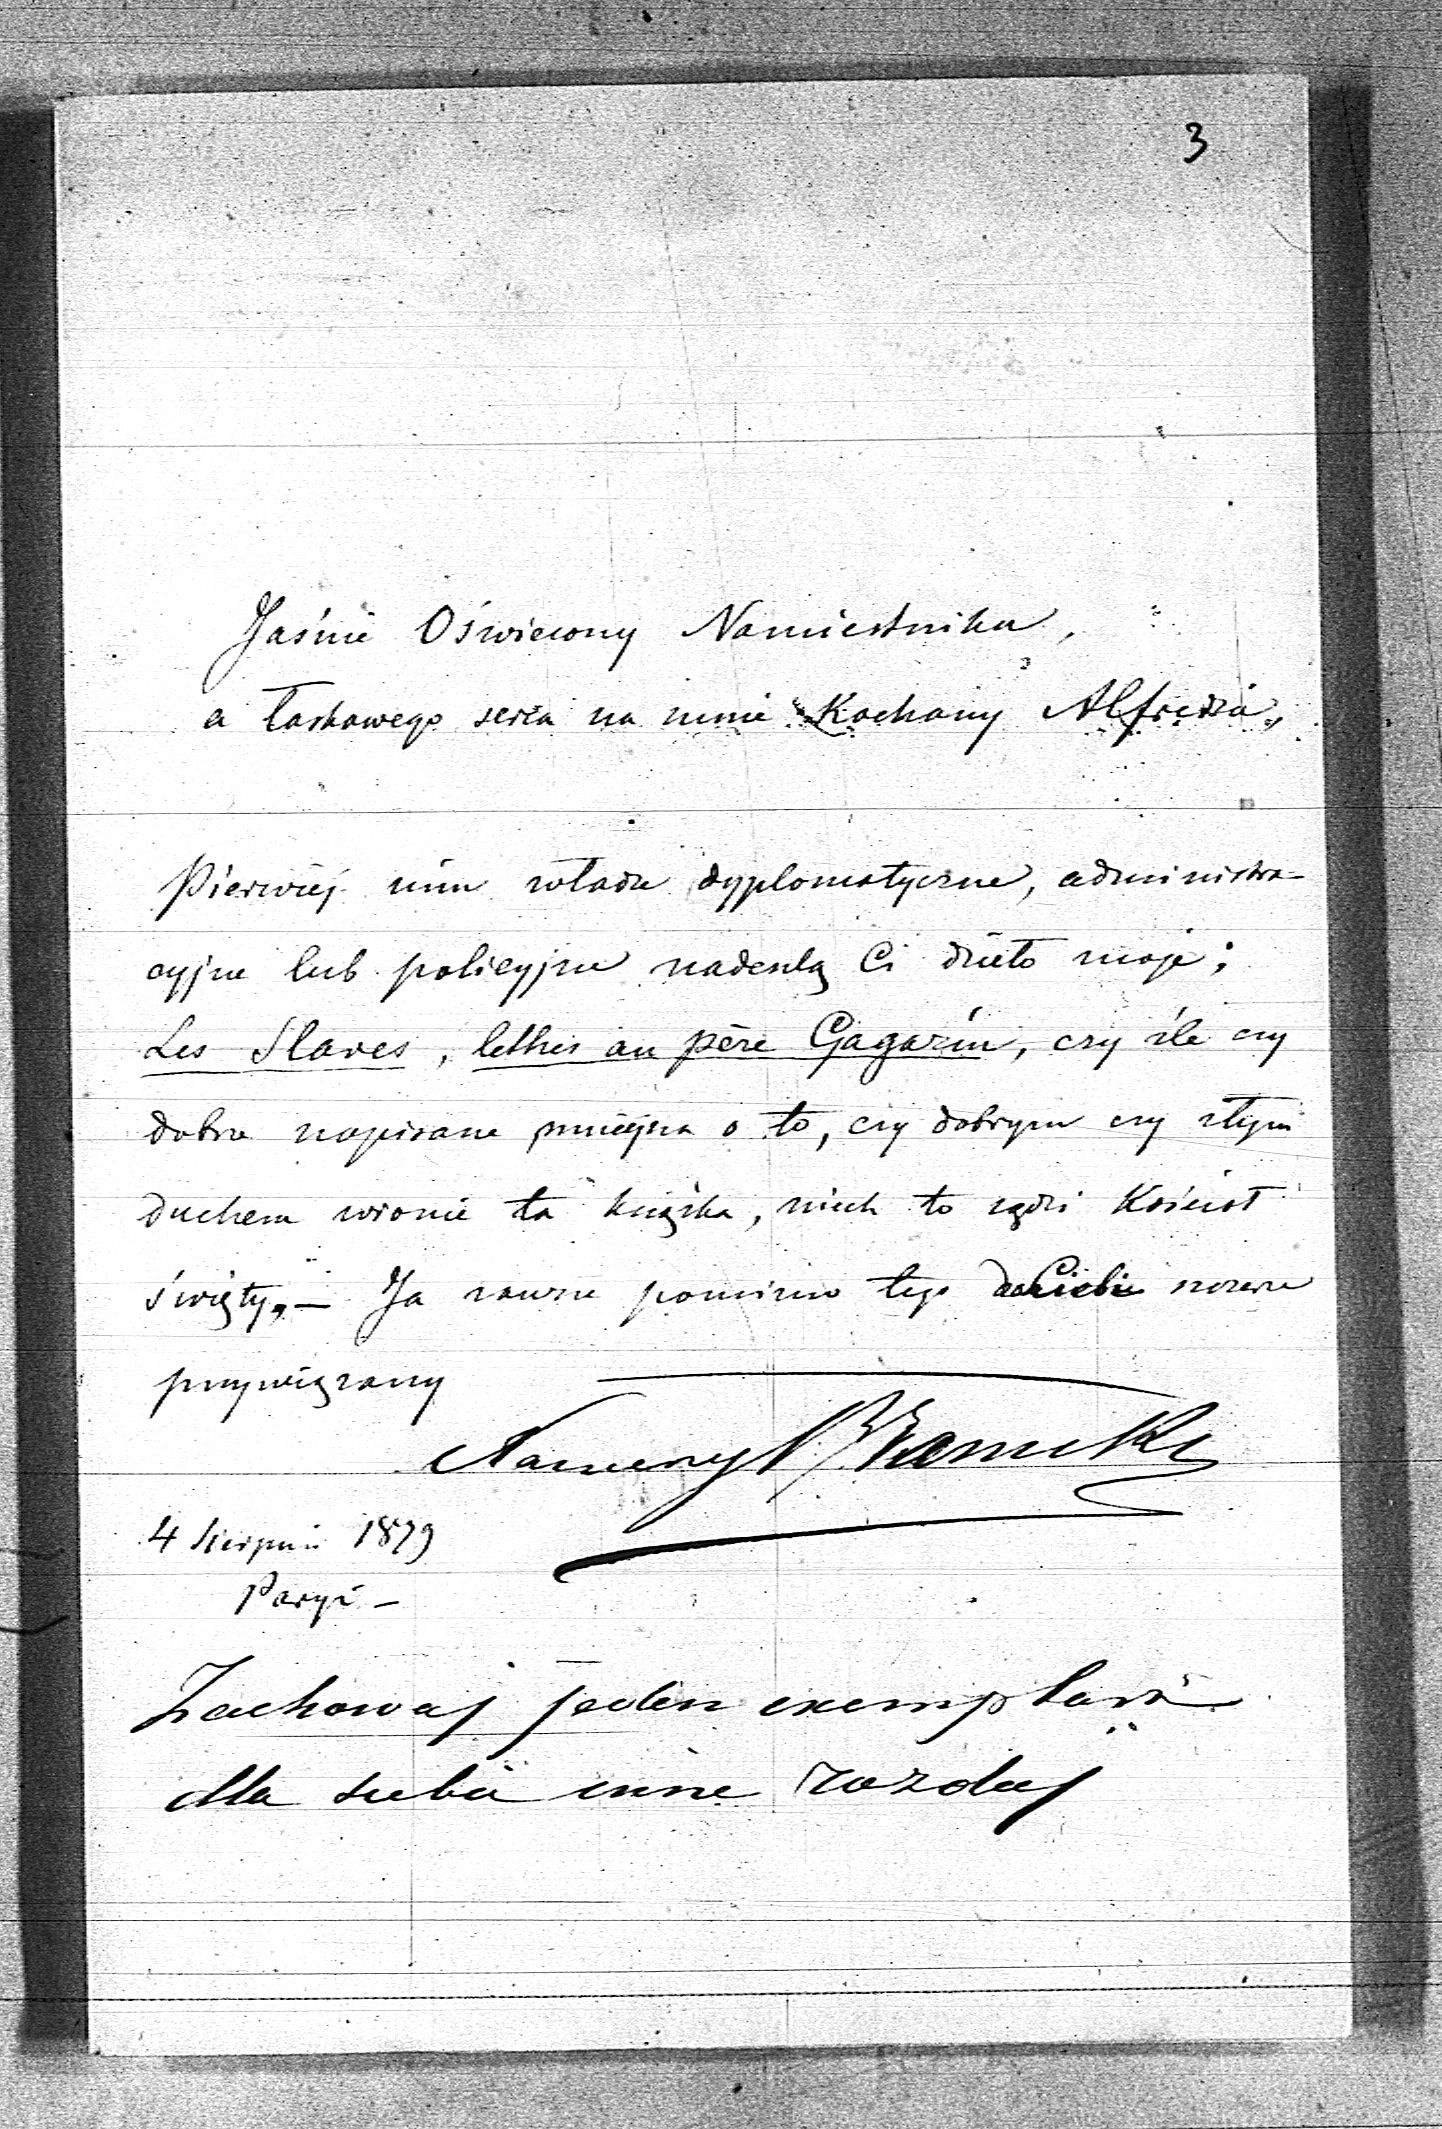 3
Jaśnie Oświecony Namiestniku,
a łaskawego serca na mnie Kochany Alfredzie,
Pierwiej nim władze dyplomatyczne, administra-
cyjne lub policyjne nadeszlą Ci dzieło moje;
Les Slaves, lettres au père Gagarin, czy źle czy
dobrze napisane mniejsza o to, czy dobrym czy złym
duchem wionie ta książka, niech to sądzi Kościół
święty. — Ja zawsze pomimo tego do Ciebie szczerze
przywiązany
4 Sierpnia 1879
Paryż —
Zachowaj jeden exemplarz
dla siebie inne rozdaj